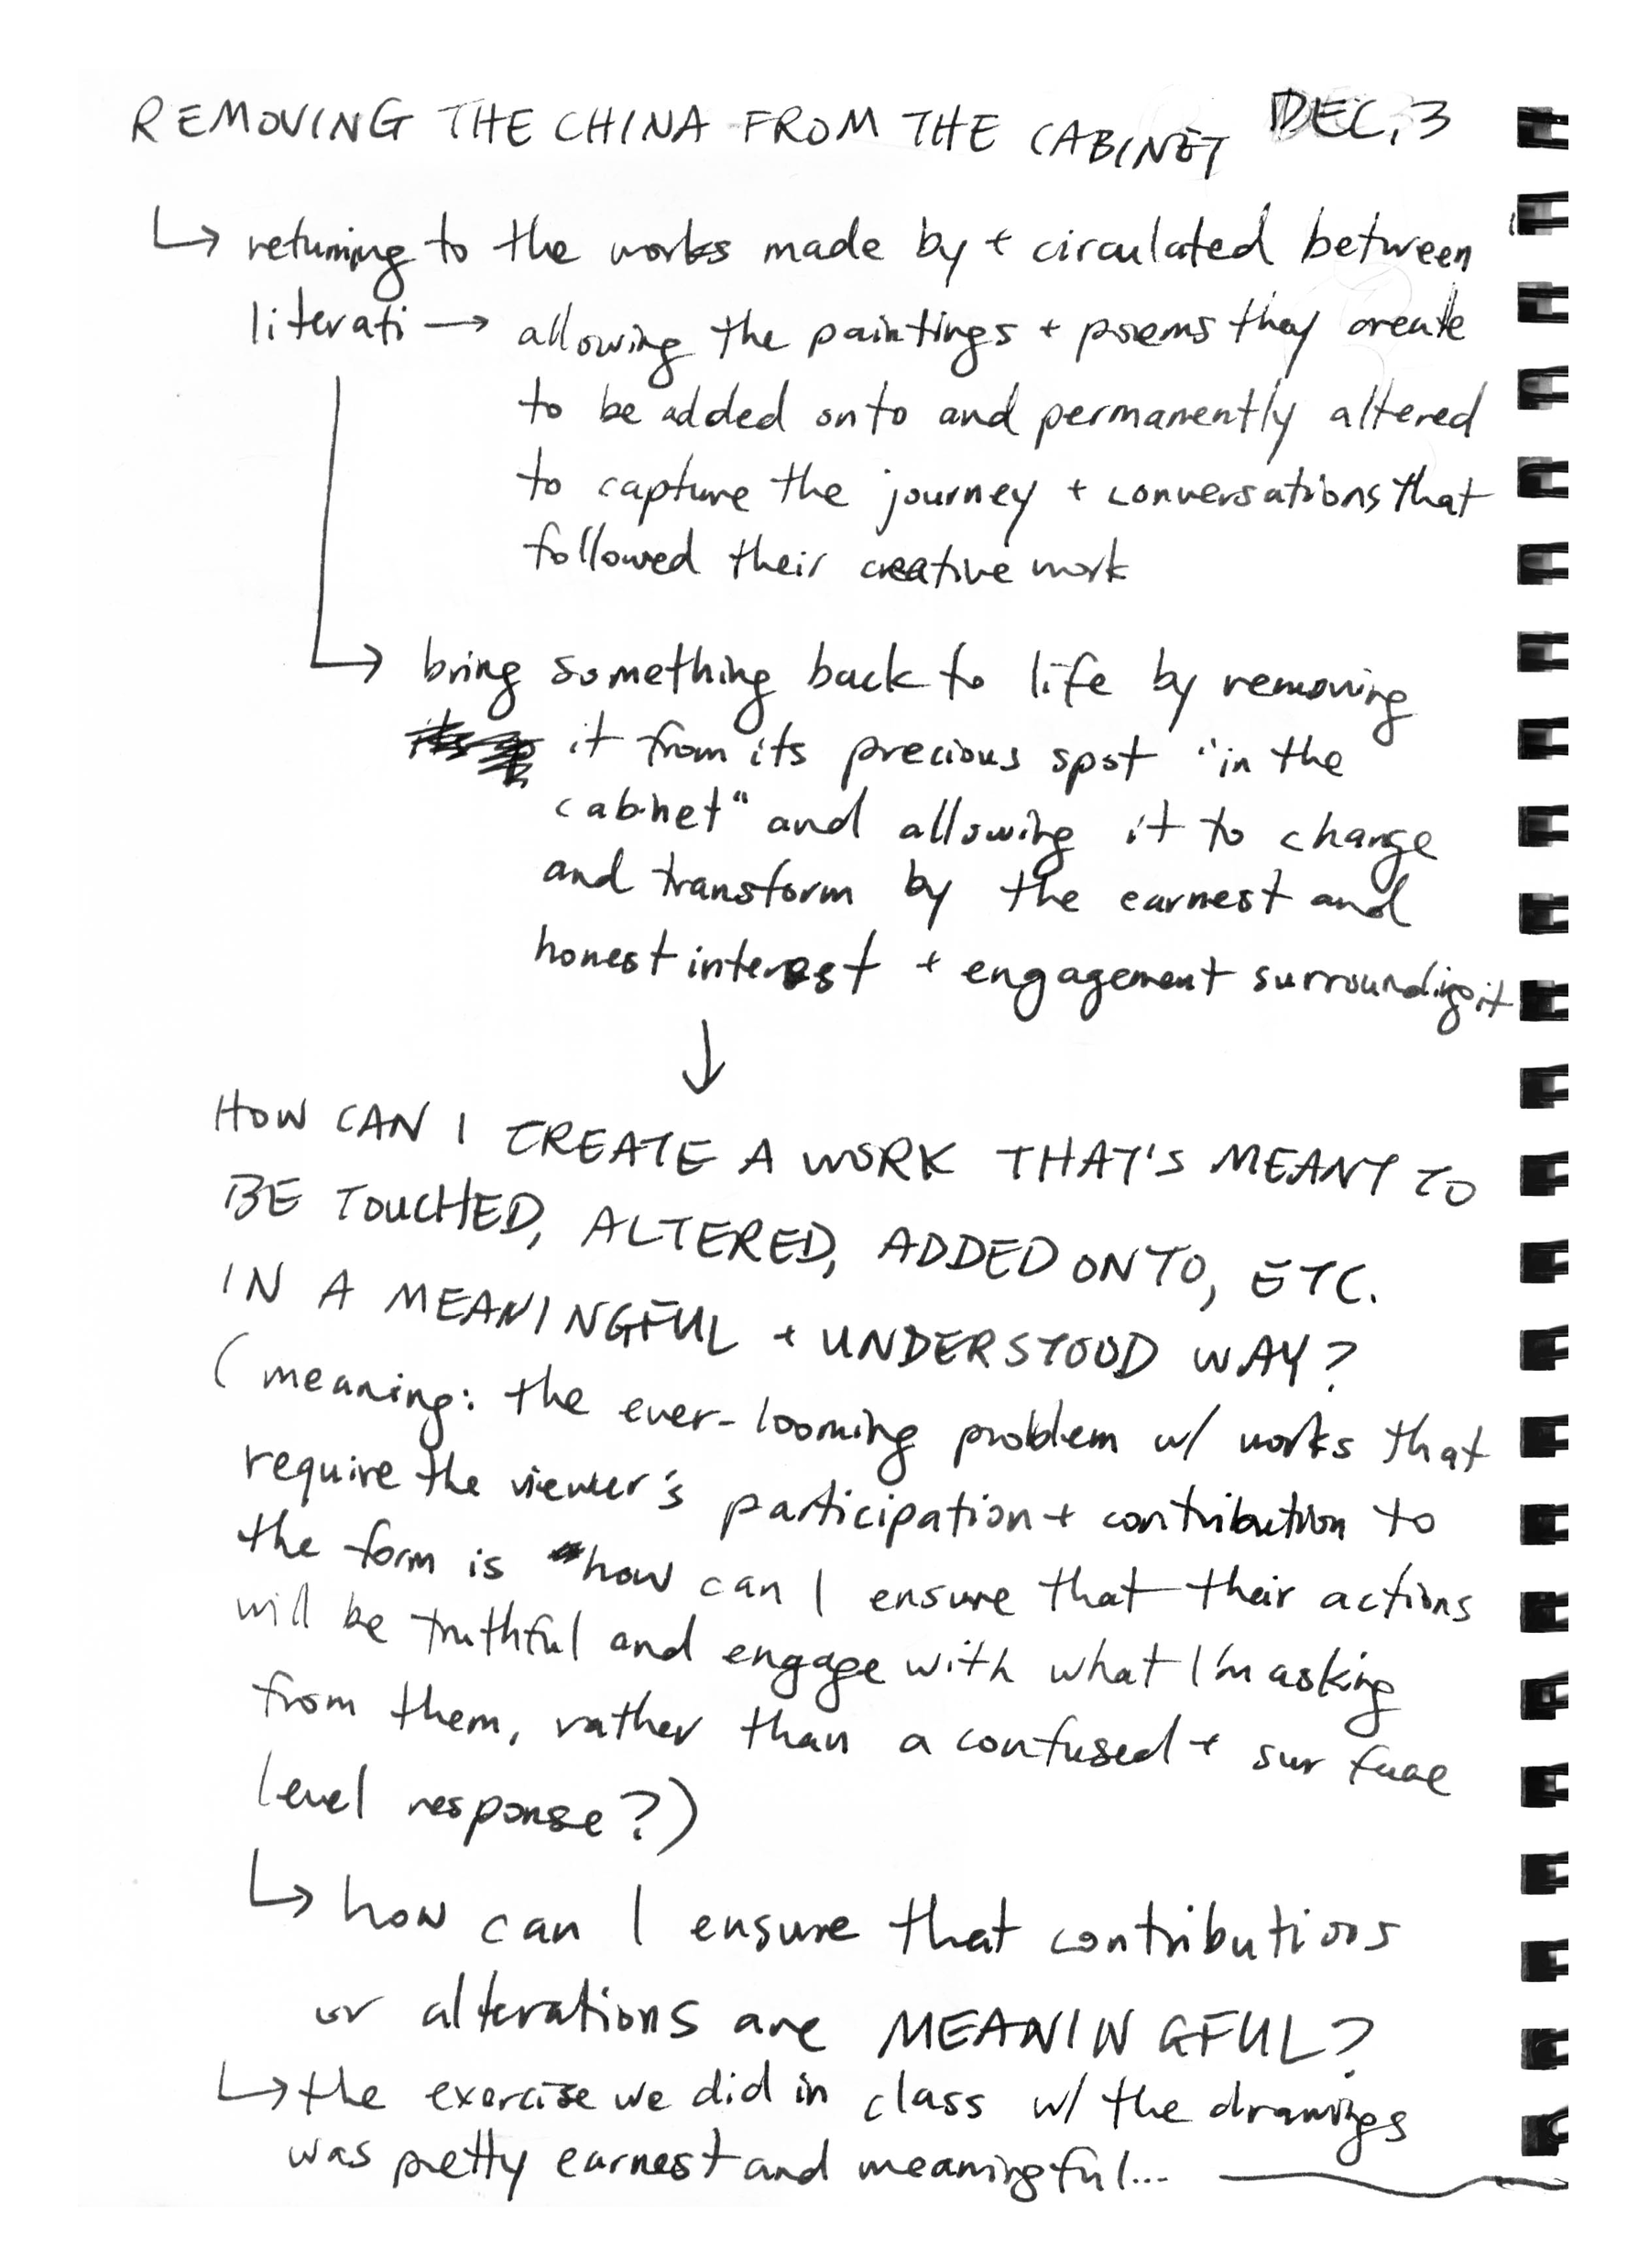 REMOVING THE CHINA FROM THE CABINET DEC. 3
↳ returning to the works made by + circulated between
literati → allowing the paintings + poems they create
to be added onto and permanently altered
to capture the journey + conversations that
followed their creative work
↳ bring something back to life by removing
it from its precious spot "in the
cabinet" and allowing it to change
and transform by the earnest and
honest interest + engagement surrounding it
↓
HOW CAN I CREATE A WORK THAT'S MEANT TO
BE TOUCHED, ALTERED, ADDED ONTO, ETC.
IN A MEANINGFUL + UNDERSTOOD WAY?
(meaning: the ever-looming problem w/ works that
require the viewer's participation + contribution to
the form is how can I ensure that their actions
will be truthful and engage with what I'm asking
from them, rather than a confused + surface
level response?)
↳ how can I ensure that contributions
or alterations are MEANINGFUL?
↳ the exercise we did in class w/ the drawings
was pretty earnest and meaningful...